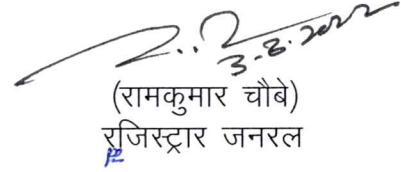 3-8-2022
(रामकुमार चौबे)
रजिस्ट्रार जनरल